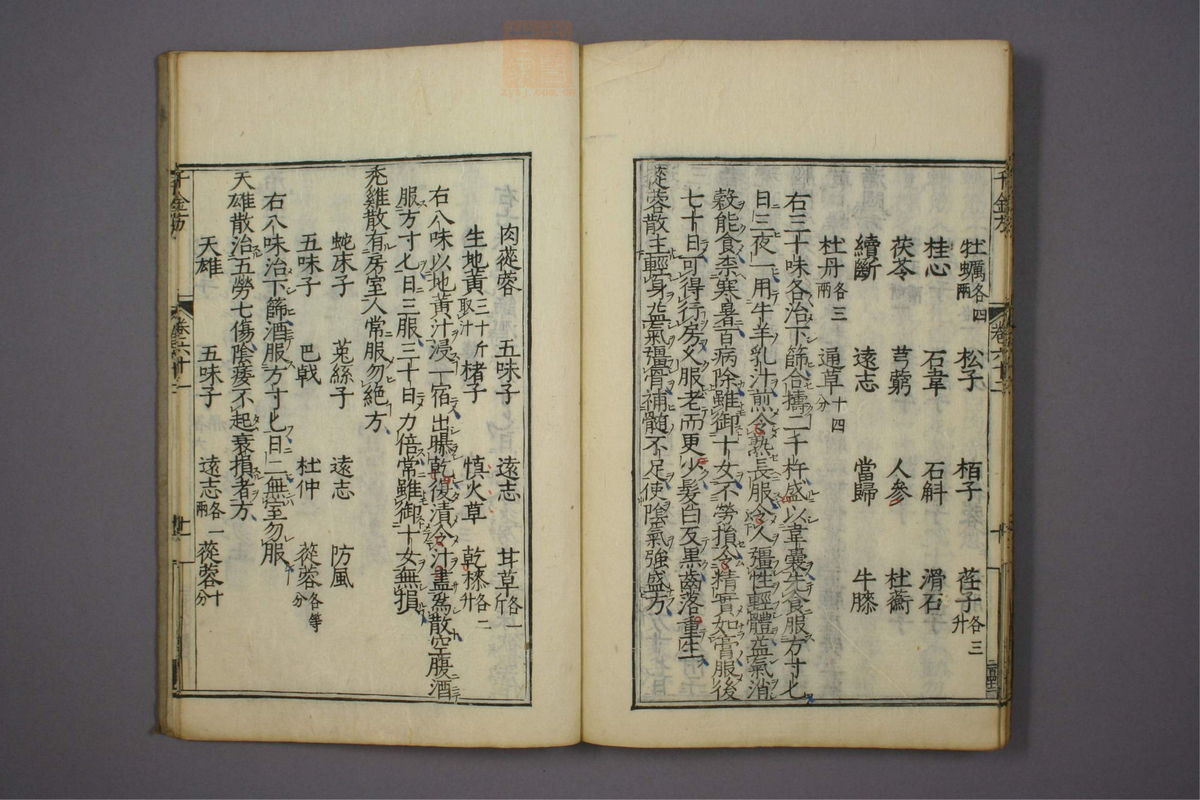 牡蠣各四兩 松子 栢子 荏子各三升
桂心 石韋 石斛 滑石
茯苓 芎藭 人參 杜蘅
續斷 遠志 當歸 牛膝
杜丹各三兩 通草十四分
右三十味各治下篩合擣二千杵盛以韋囊先食服方寸匕
日三夜一用牛羊乳汁煎令熟長服令人彊性輕體益氣消
穀能食柰寒暑百病除雖御十女不勞損令精實如膏服後
七十日可得行房久服老而更少髮白反黒齒落重生
蓯蓉散主輕身益氣彊骨補髄不足使陰氣強盛方
千金方 卷六十二 十
肉蓯蓉 五味子 遠志 甘草各一
生地黄三十斤取汁 楮子 慎火草 乾𣓨各二升
右八味以地黃汁浸一宿出曝乾復漬令汁盡為散空腹酒
服方寸匕日三服三十日力倍常雖御十女無損
禿雞散有房室人常服勿絕方
蛇床子 菟絲子 遠志 防風
五味子 巴戟 杜仲 蓯蓉各等分
右八味治下篩酒服方寸匕日二無室勿服
天雄散治五勞七傷陰痿不起衰損者方
天雄 五味子 遠志各一兩 蓯蓉十分
千金方 卷六十二 十一